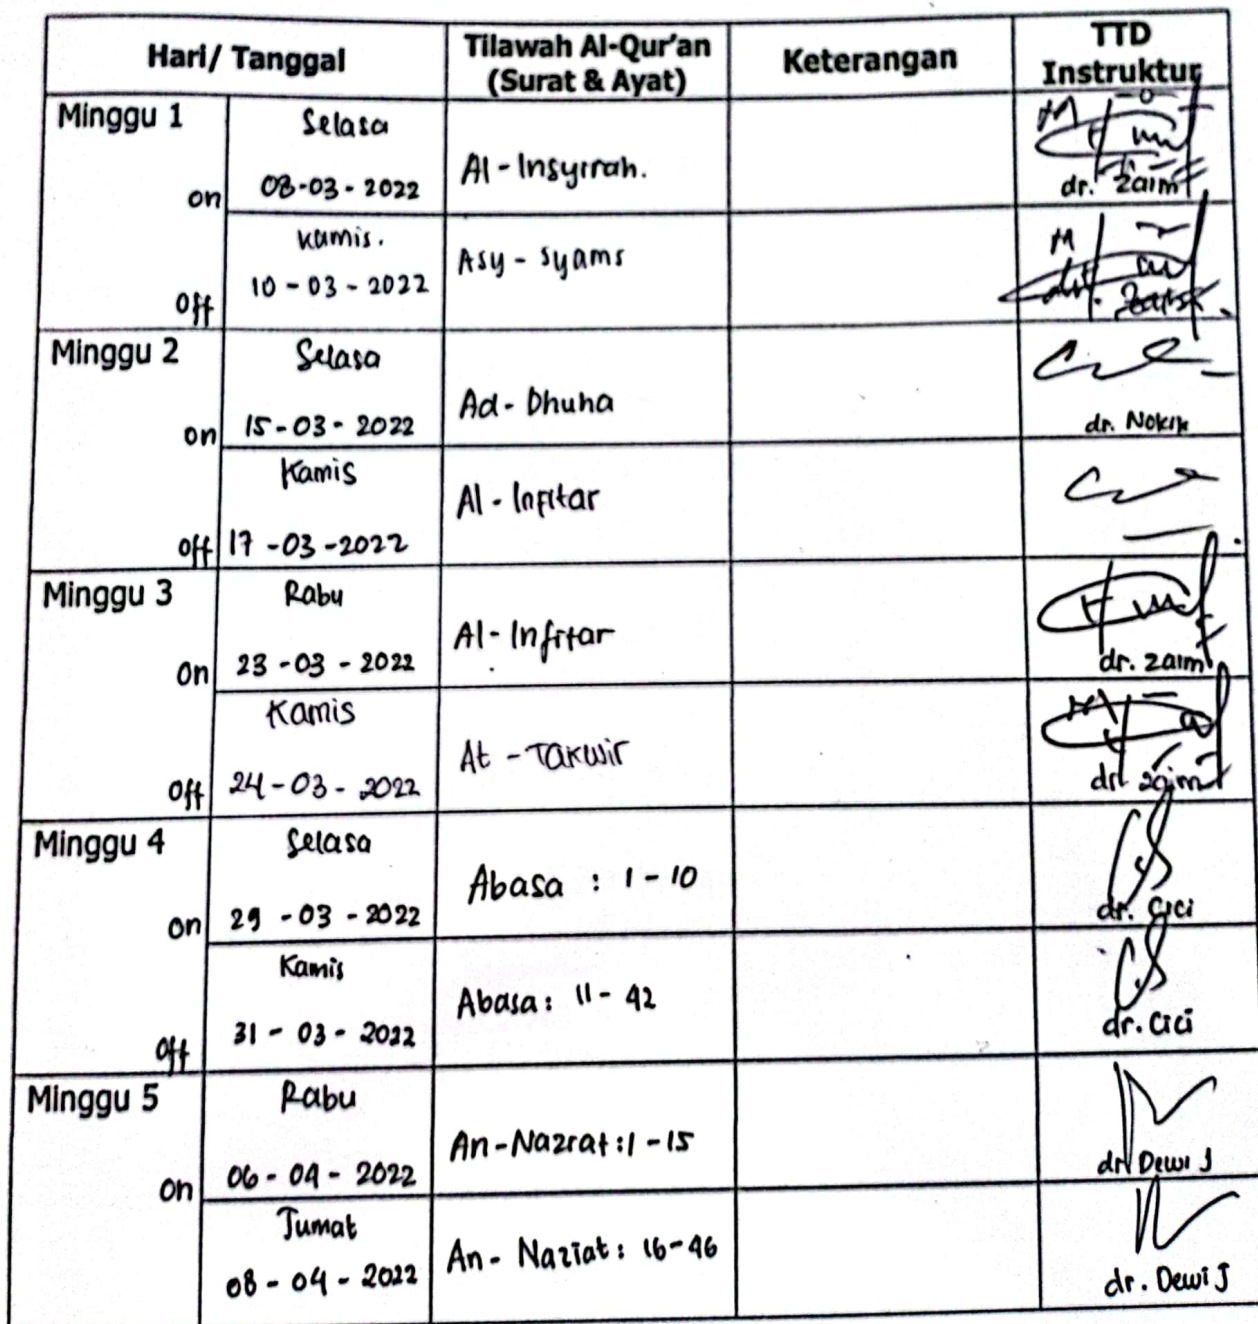 Hari/ Tanggal
Tilawah Al-Qur'an
(Surat & Ayat)
Keterangan
TTD
Instruktur
Minggu 1
Selasa
08-03-2022
on
Al-Insyirah.
dr. Zaim
Kamis.
10-03-2022
Off
Asy-Syams
Minggu 2
Selasa
15-03-2022
on
Ad-Dhuha
dr.
Kamis
17-03-2022
Off
Al-Infitar
Minggu 3
Rabu
23-03-2022
on
Al-Infitar
dr. Zaim
Kamis
24-03-2022
Off
At-Takwir
dr. Zaim
Minggu 4
Selasa
29-03-2022
on
Abasa : 1-10
dr. Cici
Kamis
31-03-2022
Off
Abasa: 11-42
dr. Cici
Minggu 5
Rabu
06-04-2022
on
An-Nazrat:1-15
dr Dewi J
Jumat
08-04-2022
An-Naziat: 16-46
dr. Dewi J